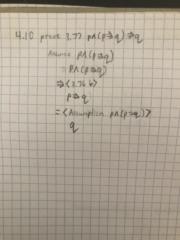 4.10 prove 3.77 p∧(p⇒q)⇒q
Assume p∧(p⇒q)
=p∧(p⇒q)
⇒<3.76 b>
p⇒q
=<Assumption p∧(p⇒q)>
q